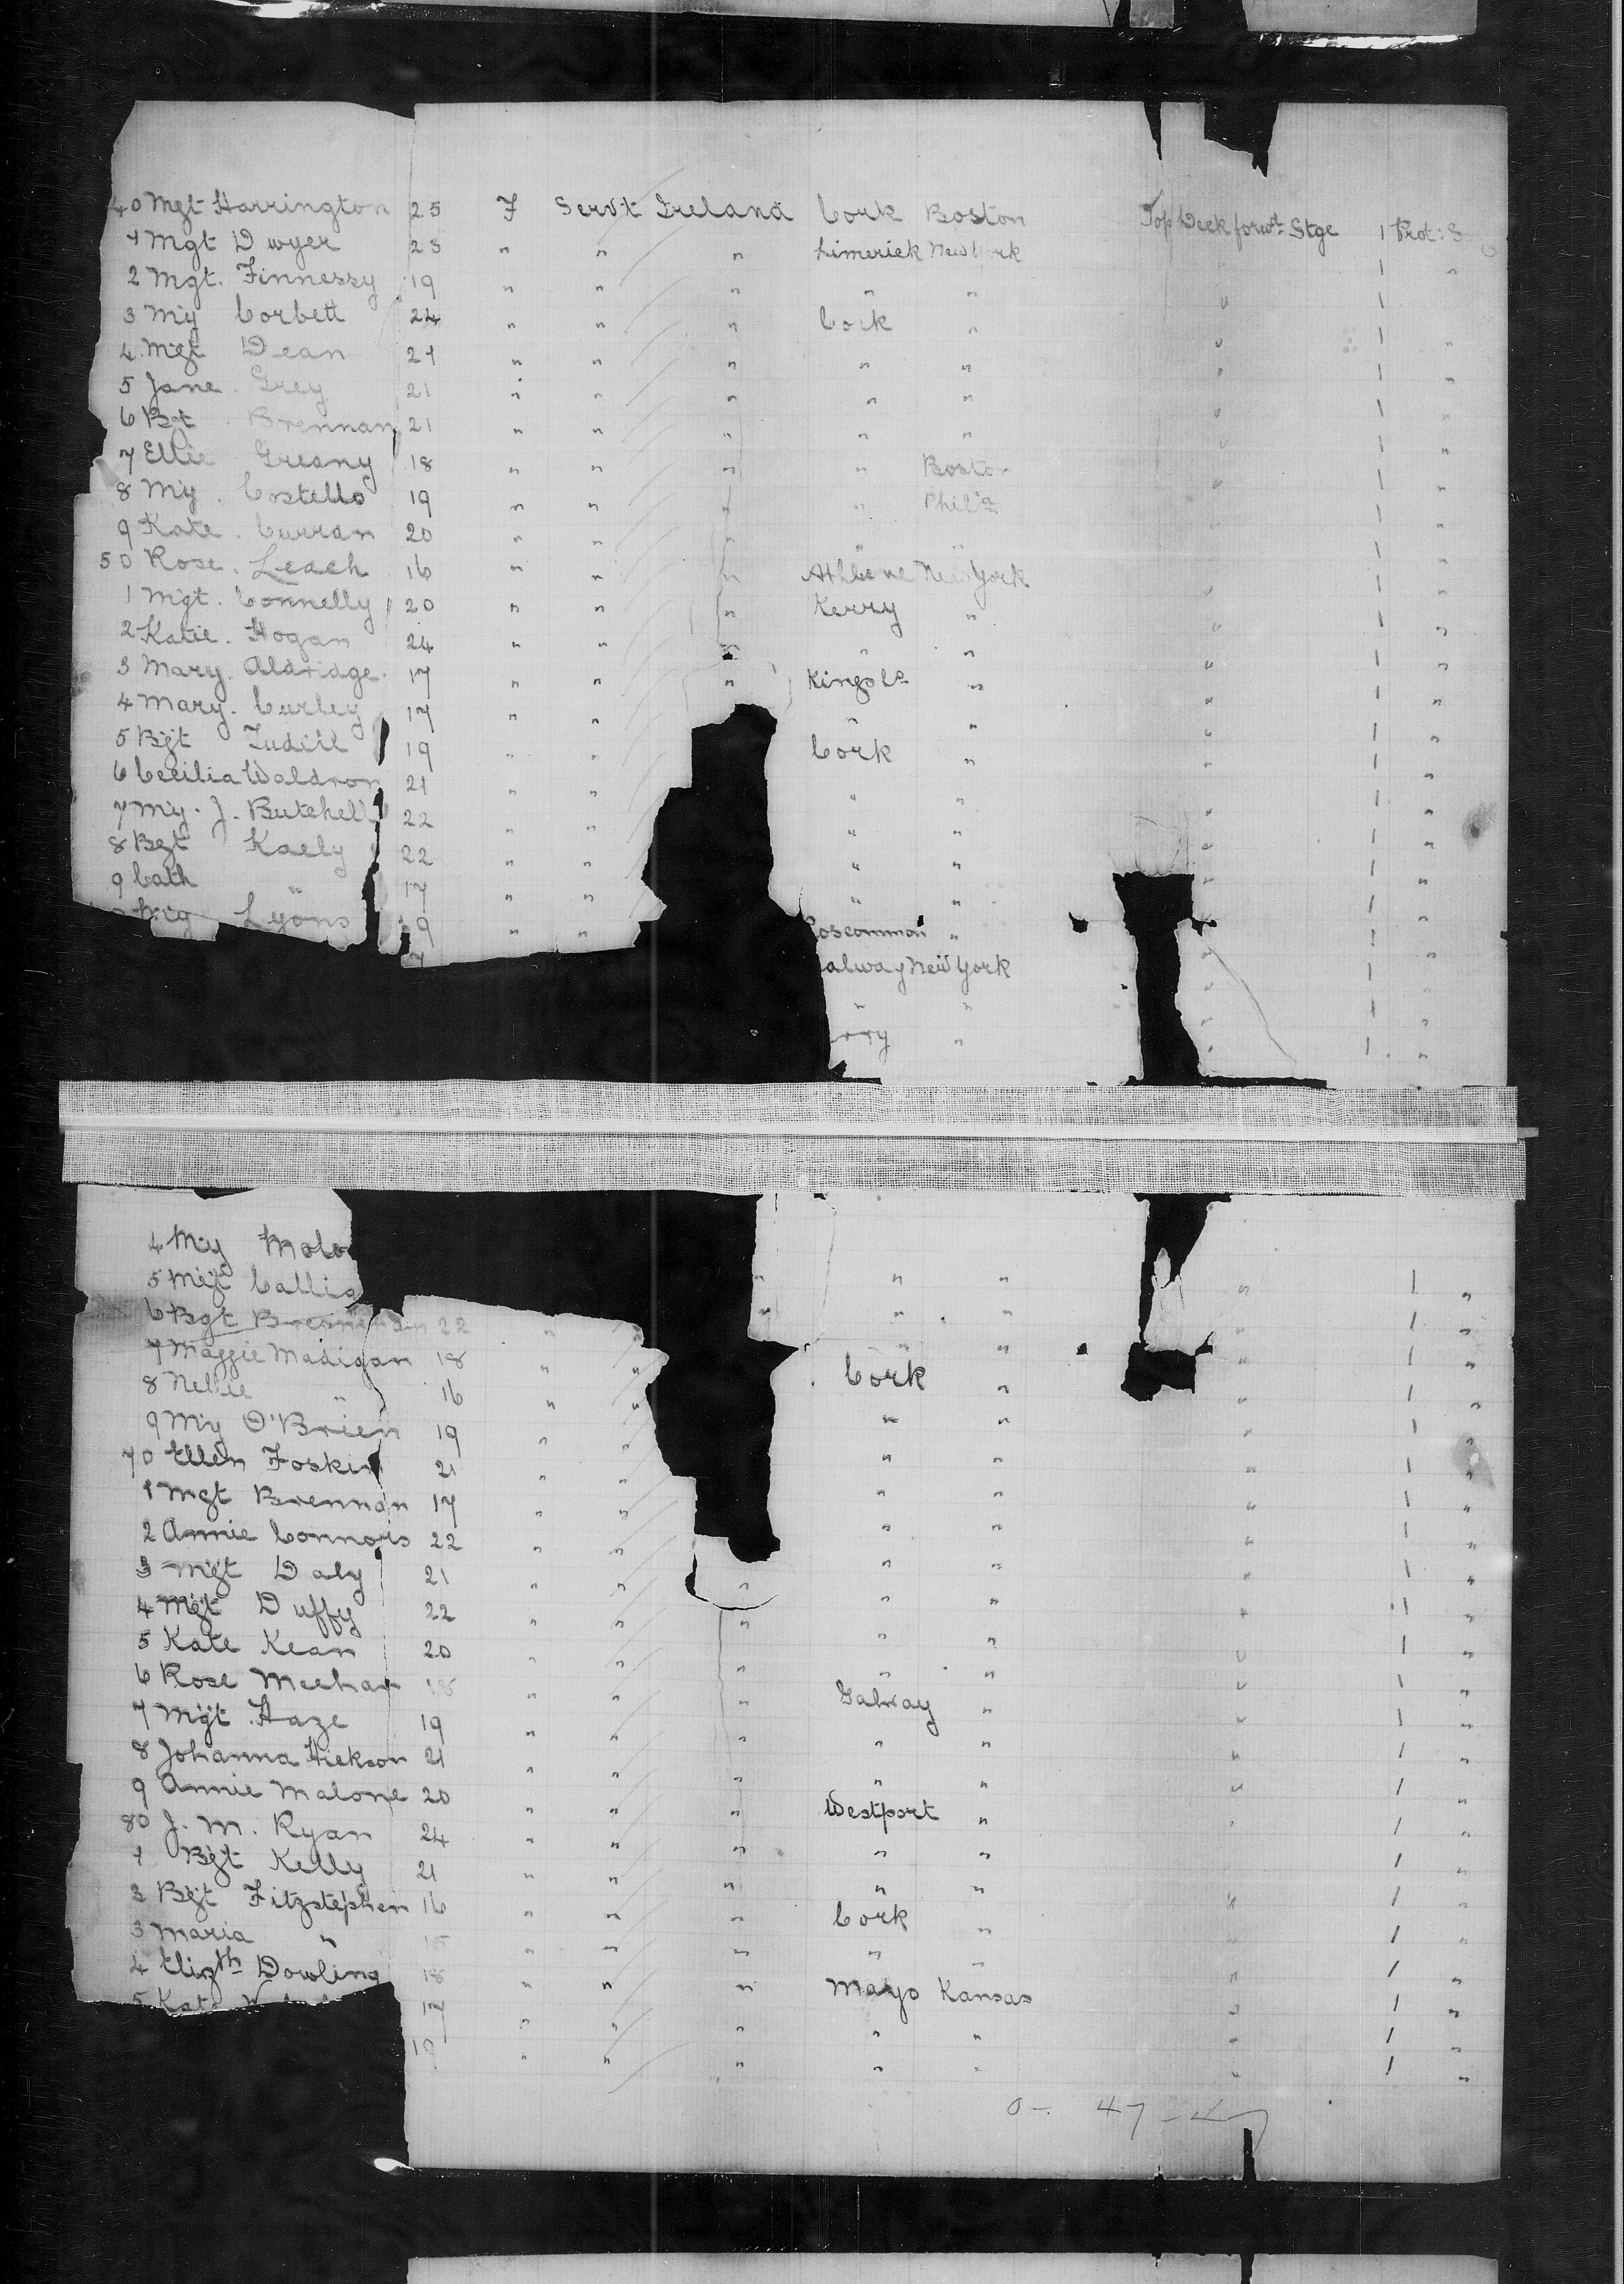 40 Mgt Harrington 25 F Servt Ireland Cork Boston Top Deck forwd Stge 1 Prot: S
1 Mgt Dwyer 23 " " " Limerick New York " 1 "
2 Mgt. Finnessy 19 " " " " " " 1
3 My Corbett 24 " " " Cork " " 1 "
4 Mgt Dean 21 " " " " " " 1 "
5 Jane. Grey 21 " " " " " " 1 "
6 Bgt. Brennan 21 " " " " " " 1 "
7 Ellie Greany 18 " " " " Boston " 1 "
8 My. Costello 19 " " " " Phila " 1 "
9 Kate. Curran 20 " " " " " " 1 "
50 Rose. Leach 16 " " " Athlone New York " 1 "
1 Mgt. Connelly 20 " " " Kerry " " 1 "
2 Katie. Hogan 24 " " " " " " 1 "
3 Mary. Aldridge. 17 " " " Kings Co " " 1 "
4 Mary. Curley 17 " " " " " 1 "
5 Bgt 19 " " Cork " " 1 "
6 Cecilia Waldron 21 " " " " " 1 "
7 My. J. Butchell 22 " " " " " 1 "
8 Bgt Kaely 22 " " " " " 1 "
9 Cath " 17 " " " " " 1 "
My Lyons 19 " " oscommon " " 1 "
7 alway New York " 1 "
" " " 1 "
rry " " 1 "
4 My Molo
5 Mgt Callig " " " " 1 "
6 Bgt 22 " " " " " " 1 "
7 Maggie Madigan 18 " " " " " 1 "
8 Nellie " 16 " " Cork " " 1 "
9 My O'Brien 19 " " " " " 1 "
70 Ellen Foskin 21 " " " " " 1 "
1 Mgt Brennan 17 " " " " " 1 "
2 Annie Connors 22 " " " " " 1 "
3 Mgt Daly 21 " " " " " " 1 "
4 Mgt Duffy 22 " " " " " " 1 "
5 Kate Kean 20 " " " " " " 1 "
6 Rose Meehan 18 " " " Galway " " 1 "
7 Mgt. Haze 19 " " " " " " 1 "
8 Johanna Hickson 21 " " " " " " 1 "
9 Annie Malone 20 " " " Westport " " 1 "
80 J. M. Ryan 24 " " " " " " 1 "
1 Bgt Kelly 21 " " " " " " 1 "
2 Bgt Fitzstephen 16 " " " Cork " " 1 "
3 Maria " 15 " " " " " " 1 "
4 Elizth Dowling 18 " " " Mayo Kansas " 1 "
5 Kate 17 " " " " " " 1 "
19 " " " " " " 1 "
0 - 47 - 47